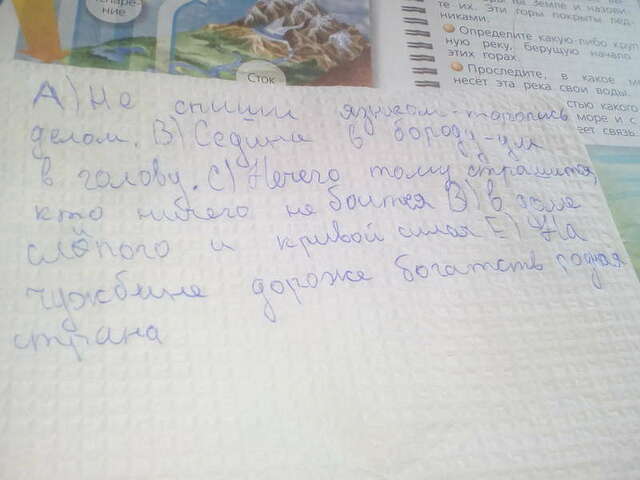 паре-
ние
Сток
те их. Эти горы покрыты лед-
никами.
Определите какую-либо круп
ную реку, берущую начало
этих горах.
Проследите, в какое м
несёт эта река свои воды.
стью какого
море и с
еет связь
А) Не спиши языком-торопись
делом. В) Седина в бороду-ум
в голову. С) Нечего тому страшится,
кто ничего не боится В) в земле
слепого и кривой силая Е) На
чужбине дороже богатств родная
страна